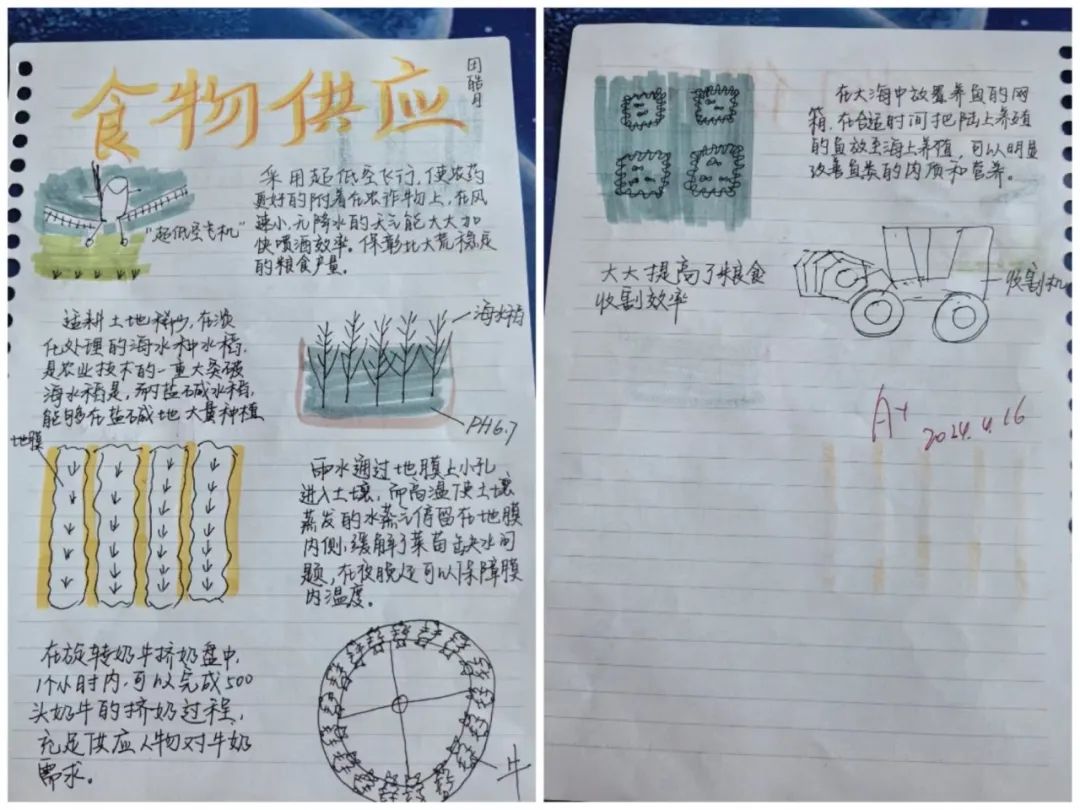 食物供应
田皓月
采用超低空飞行,使农药
更好的附着在农作物上,在风
速小,无降水的天气能大大加
快喷洒效率。保障北大荒稳定
的粮食产量。
"超低空飞机"
适耕土地稀少,在淡
化处理的海水种水稻,
是农业技术的一重大突破
海水稻是,耐盐碱水稻,
能够在盐碱地大量种植
海水稻
PH6.7
地膜
雨水通过地膜上小孔
进入土壤,而高温使土壤
蒸发的水蒸气停留在地膜
内侧,缓解了菜苗缺水问
题,在夜晚还可以保障膜
内温度。
在旋转奶牛挤奶盘中,
1个小时内,可以完成500
头奶牛的挤奶过程,
充足供应人物对牛奶
需求。
牛
在大海中放置养鱼的网
箱,在合适时间把陆上养殖
的鱼放至海上养殖,可以明显
改善鱼类的肉质和营养。
大大提高了粮食
收割效率
收割机
A+
2024.4.16